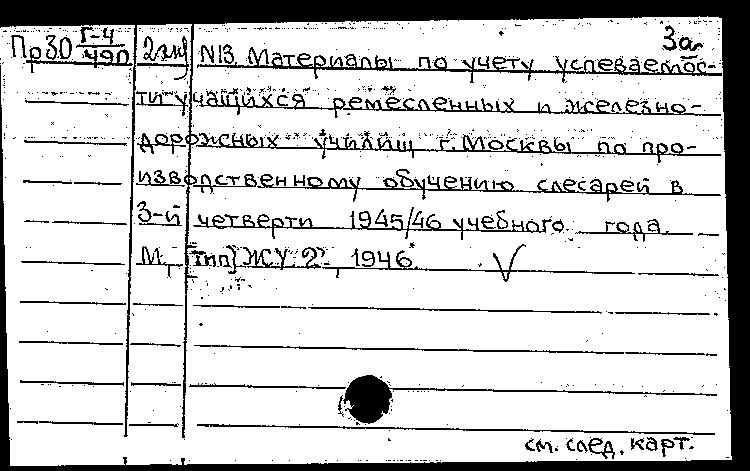 За
Пр30 Г-4/490 2 экз N13 Материалы по учету успеваемос-
ти учащихся ремесленных и железно-
дорожных училищ г. Москвы по про-
изводственному обучению слесарей в
3-й четверти 1945/46 учебного года.
М., [тип] ЖУ 2, 1946.
см. след. карт.